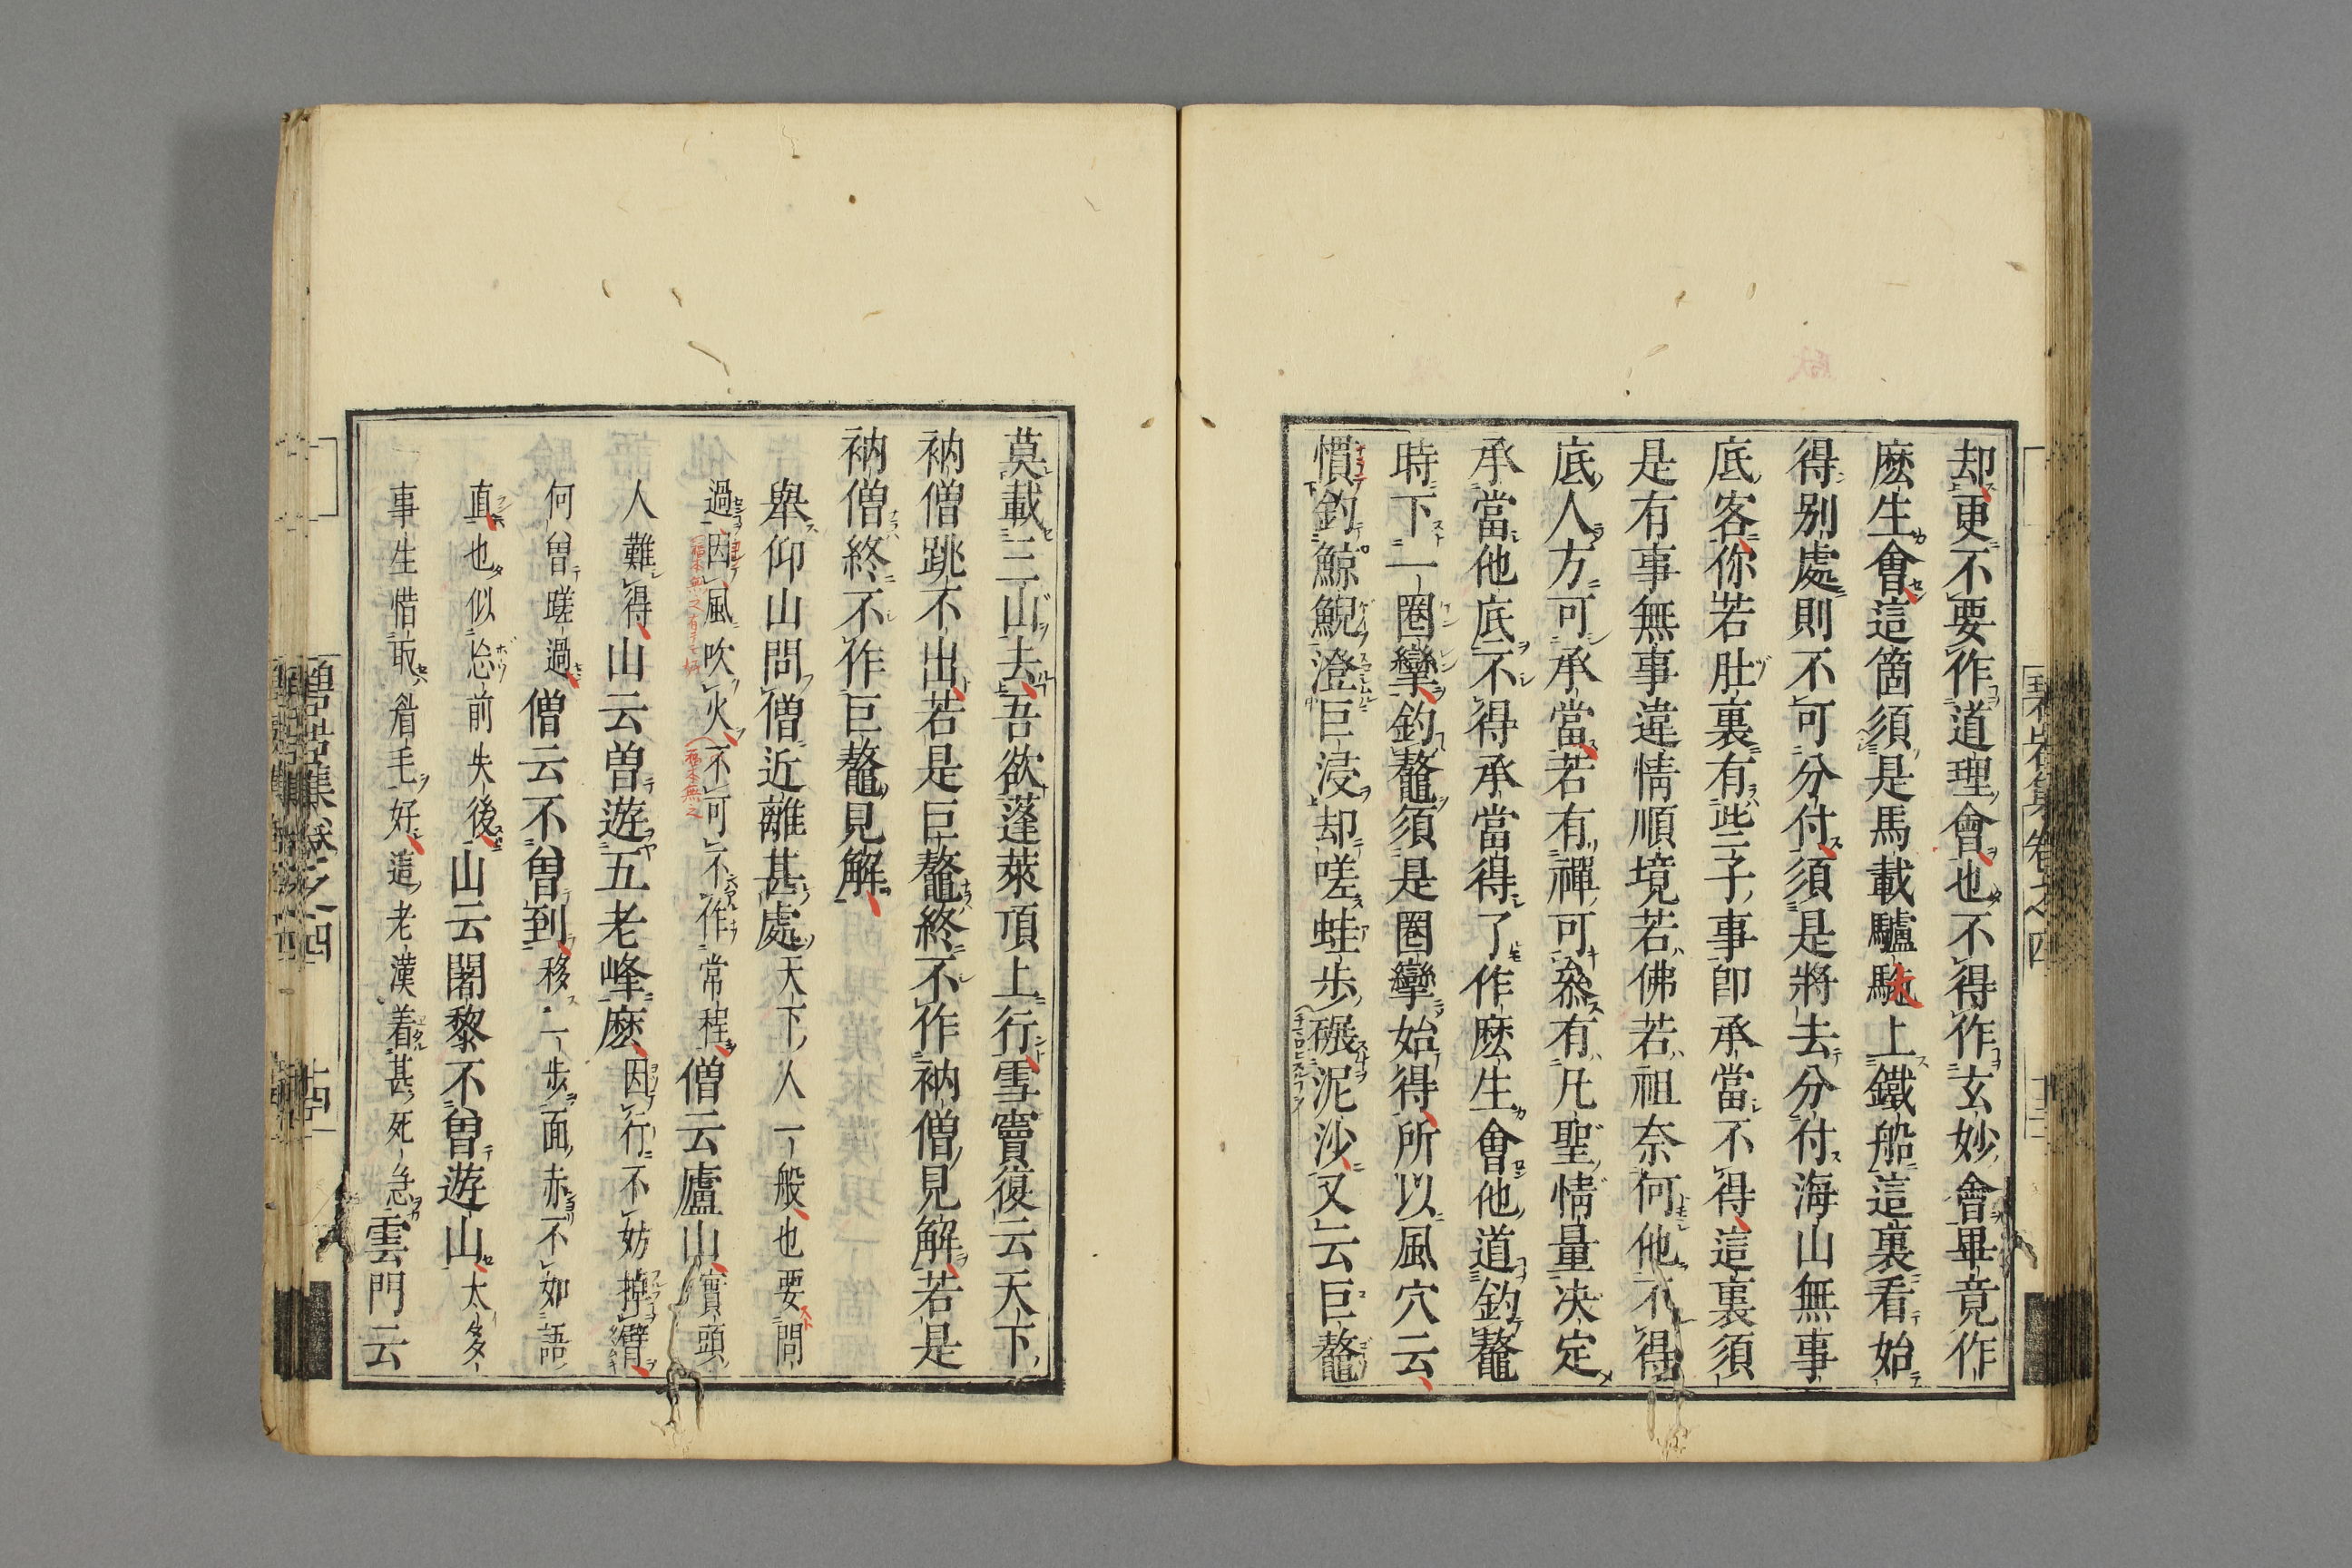 却更不要作道理會也不得作玄妙會畢竟作
麽生會這箇須是馬載驢馱上鐵船這裏看始
得別處則不可分付須是將去分付海山無事
底客你若肚裏有些子事卽承當不得這裏須
是有事無事違情順境若佛若祖奈何他不得
底人方可承當若有禪可叅有凡聖情量決定
承當他底不得承當得了作麽生會他道釣鼇
時下一圈攣釣鼇須是圈攣始得所以風穴云
慣釣鯨鯢澄巨浸却嗟蛙步䠣泥沙又云巨鼇
莫載三山去吾欲蓬萊頂上行雪竇復云天下
衲僧跳不出若是巨鼇終不作衲僧見解若是
衲僧終不作巨鼇見解
舉仰山問僧近離甚處天下人一般也要問
過因風吹火不可不作常程僧云廬山實頭
人難得山云曾遊五老峰麽因行不妨掉臂
何曾蹉過僧云不曾到移一步面赤不如語
直也似忘前失後山云闍黎不曾遊山太多
事生惜取眉毛好這老漢着甚死急雲門云
碧岩集卷之四